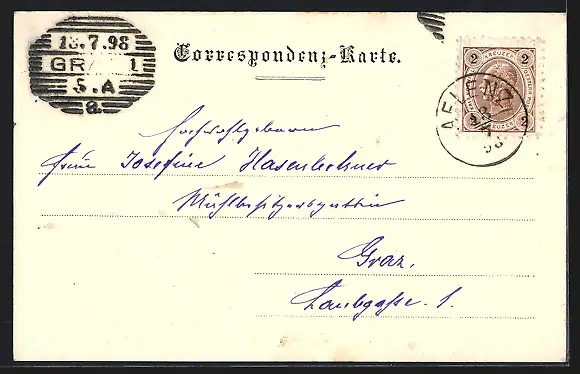 13.7.98
GRAZ 1
5.A
a.
Correspondenz-Karte.
2 KREUZER 2
2 KREUZER 2
AFLENZ
98
Hochwohlgeboren
Frau Josefine Hasenlechner
Mühlbesitzersgattin
Graz,
Laubgasse 1.